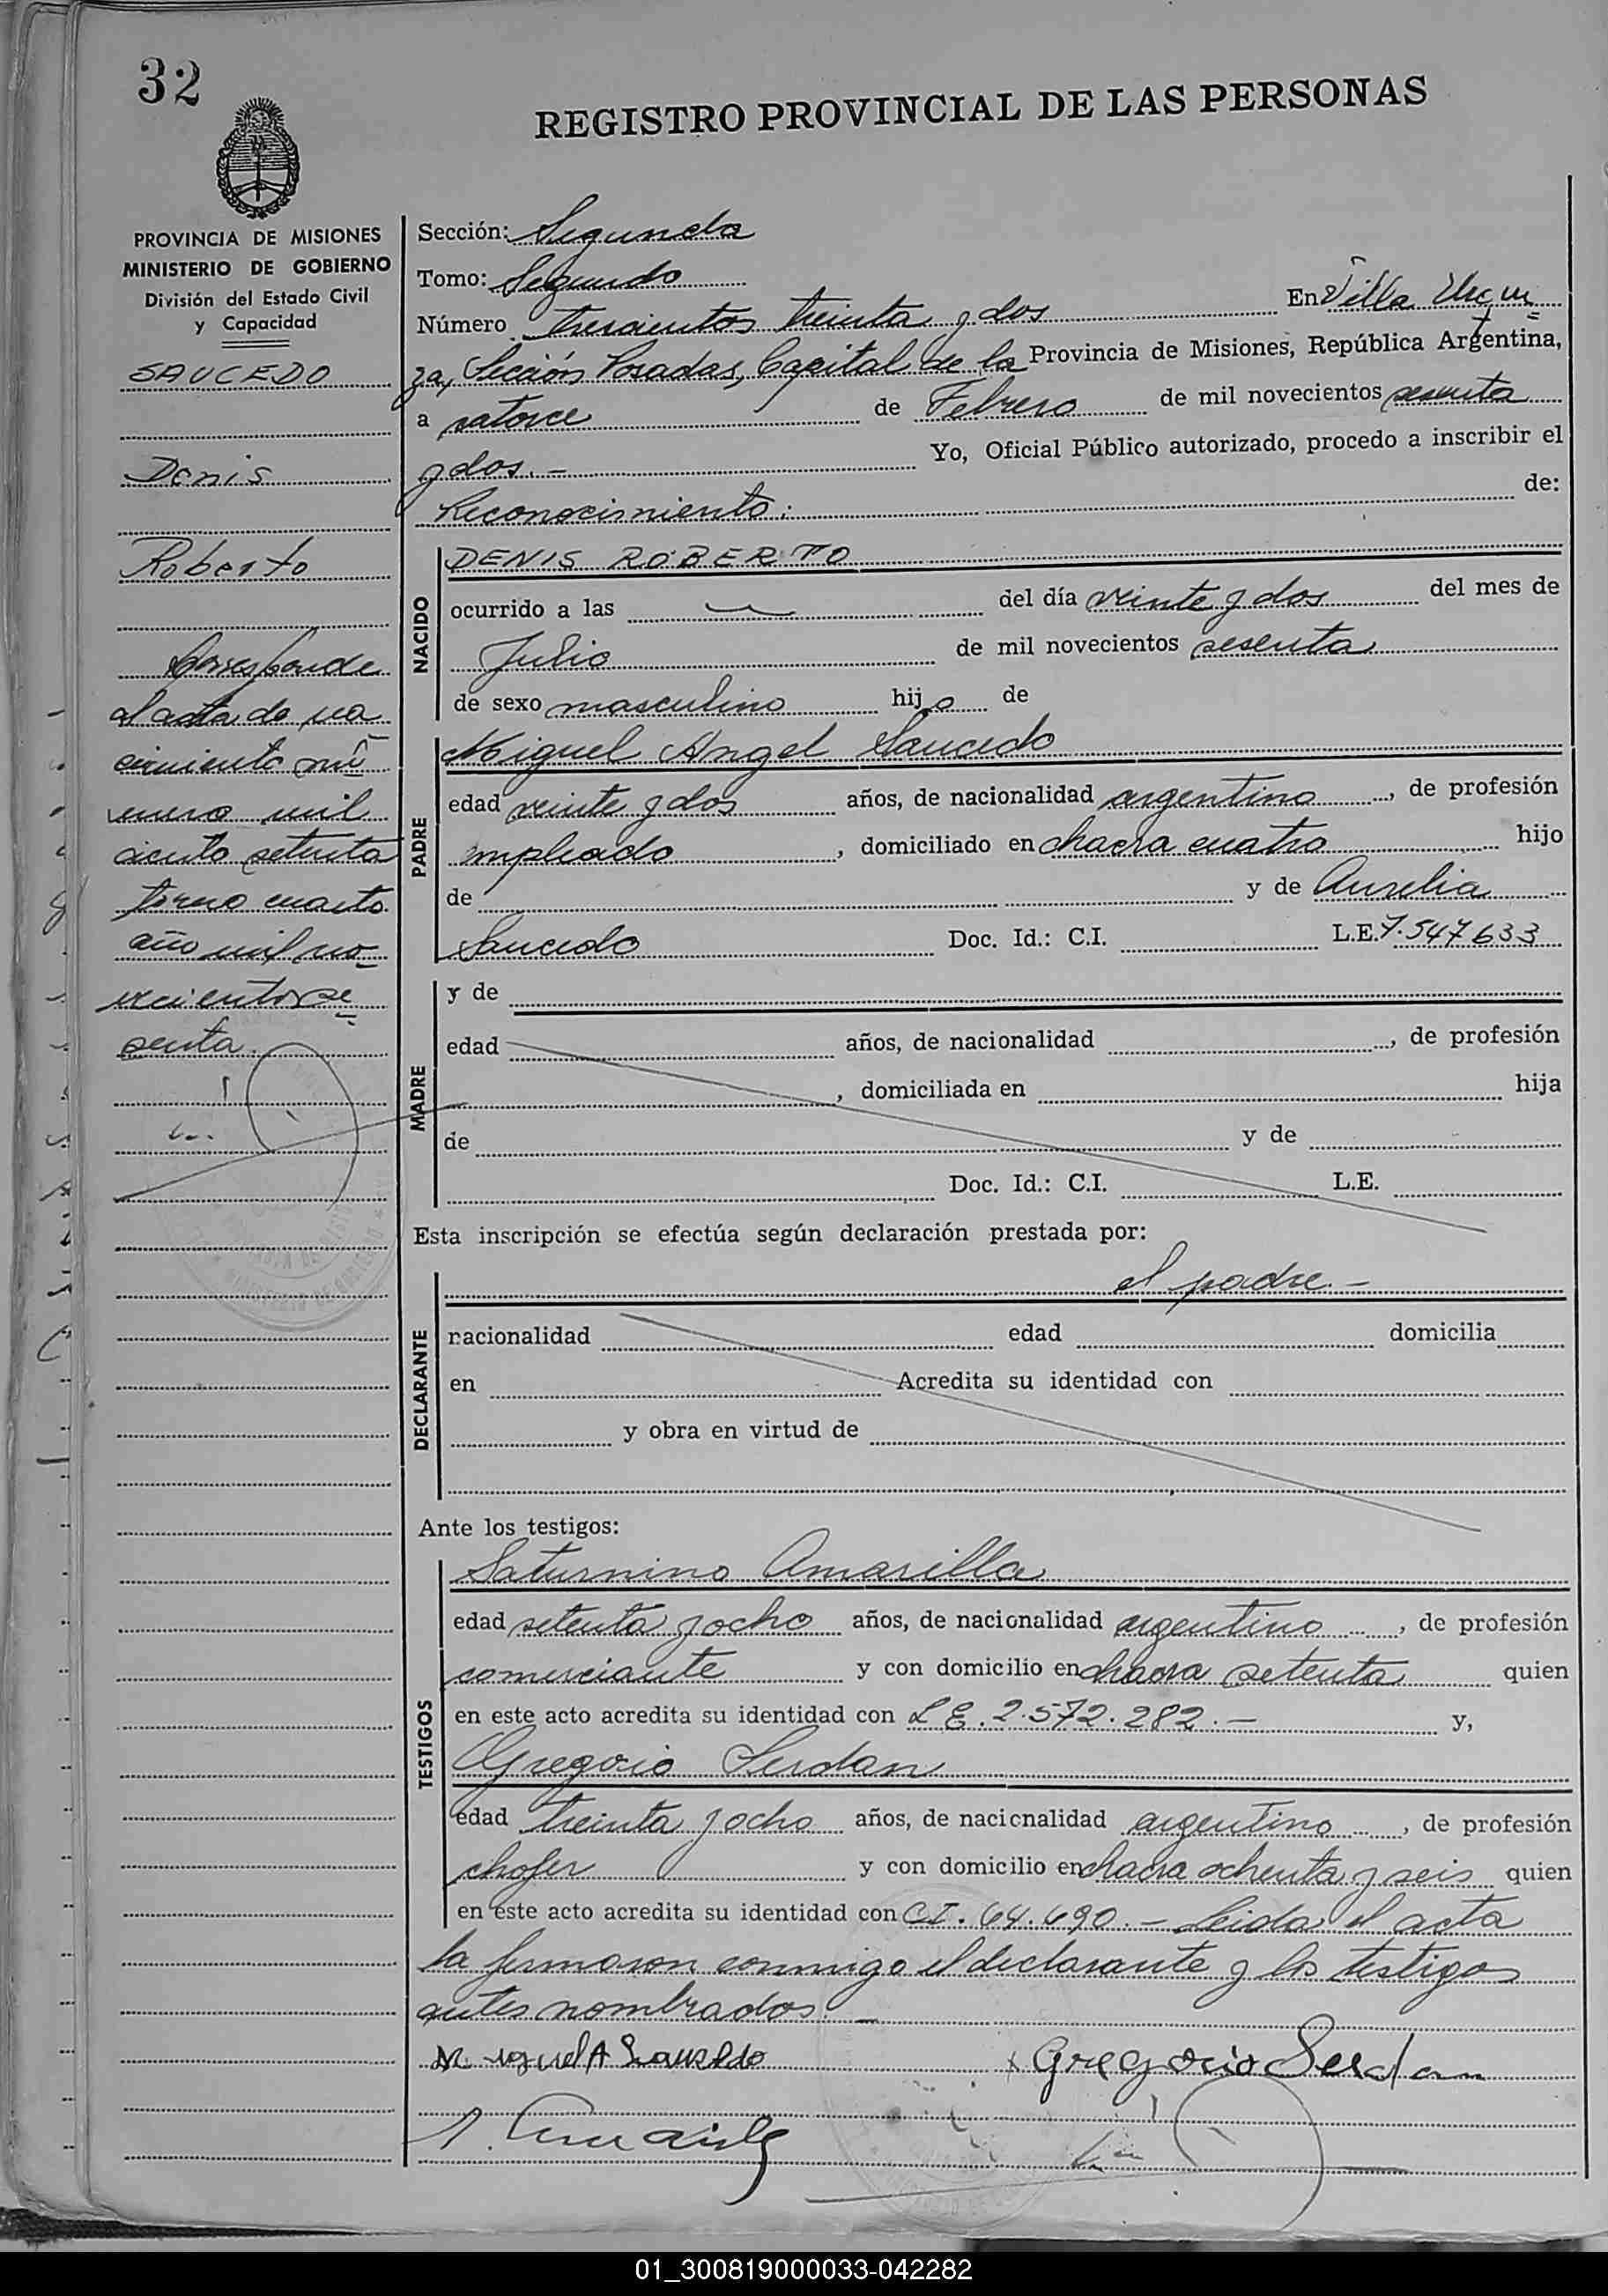 32
REGISTRO PROVINCIAL DE LAS PERSONAS
PROVINCIA DE MISIONES
MINISTERIO DE GOBIERNO
División del Estado Civil
y Capacidad
SAUCEDO
Denis
Roberto
Corresponde
al acta de na
cimiento nú
mero mil
ciento setenta
tomo cuarto
año mil no
vecientos se
senta.
Sección: Segunda
Tomo: Segundo
Número trescientos treinta y dos En Villa Urqui
za, Sección Posadas, Capital de la Provincia de Misiones, República Argentina,
a catorce de Febrero de mil novecientos sesenta
y dos.- Yo, Oficial Público autorizado, procedo a inscribir el
Reconocimiento: de:
NACIDO
DENIS ROBERTO
ocurrido a las del día veinte y dos del mes de
Julio de mil novecientos sesenta
de sexo masculino hijo de
PADRE
Miguel Angel Saucedo
edad veinte y dos años, de nacionalidad argentino, de profesión
empleado, domiciliado en chacra cuatro hijo
de y de Aurelia
Saucedo Doc. Id.: C.I. L.E. 7.547633
MADRE
y de
edad años, de nacionalidad , de profesión
, domiciliada en hija
de y de
Doc. Id.: C.I. L.E.
Esta inscripción se efectúa según declaración prestada por:
el padre.-
DECLARANTE
nacionalidad edad domicilia
en Acredita su identidad con
y obra en virtud de
Ante los testigos:
TESTIGOS
Saturnino Amarilla
edad setenta y ocho años, de nacionalidad argentino, de profesión
comerciante y con domicilio en chacra setenta quien
en este acto acredita su identidad con L E. 2.572.282.- y,
Gregorio Serdan
edad treinta y ocho años, de nacionalidad argentino, de profesión
chofer y con domicilio en chacra ochenta y seis quien
en este acto acredita su identidad con CI. 64.690.- Leida el acta
la firmaron conmigo el declarante y los testigos
antes nombrados.-
Miguel A Saucedo
x Gregorio Serdan
01_300819000033-042282